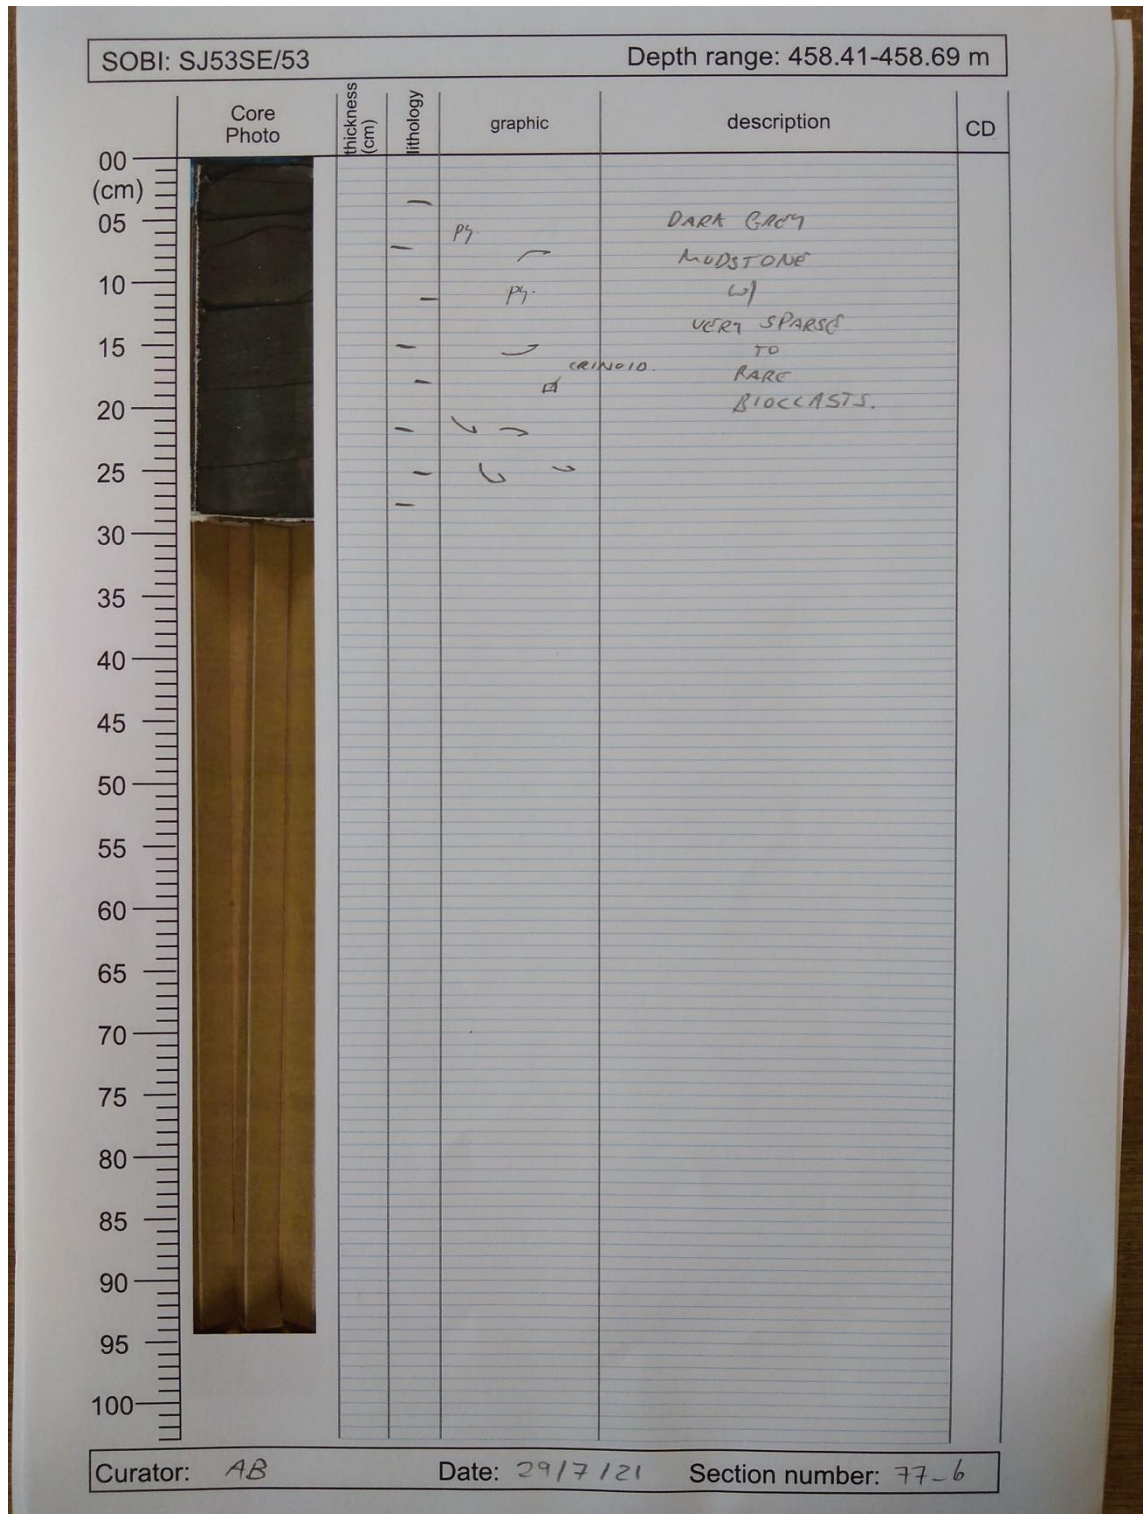 SOBI: SJ53SE/53 Depth range: 458.41-458.69 m
Core Photo thickness (cm) lithology graphic description CD
00
(cm)
05
10
15
20
25
30
35
40
45
50
55
60
65
70
75
80
85
90
95
100
Py.
Py.
CRINOID.
DARK GREY
MUDSTONE
w/
VERY SPARSE
TO
RARE
BIOCLASTS.
Curator: AB Date: 29/7/21 Section number: 77-6